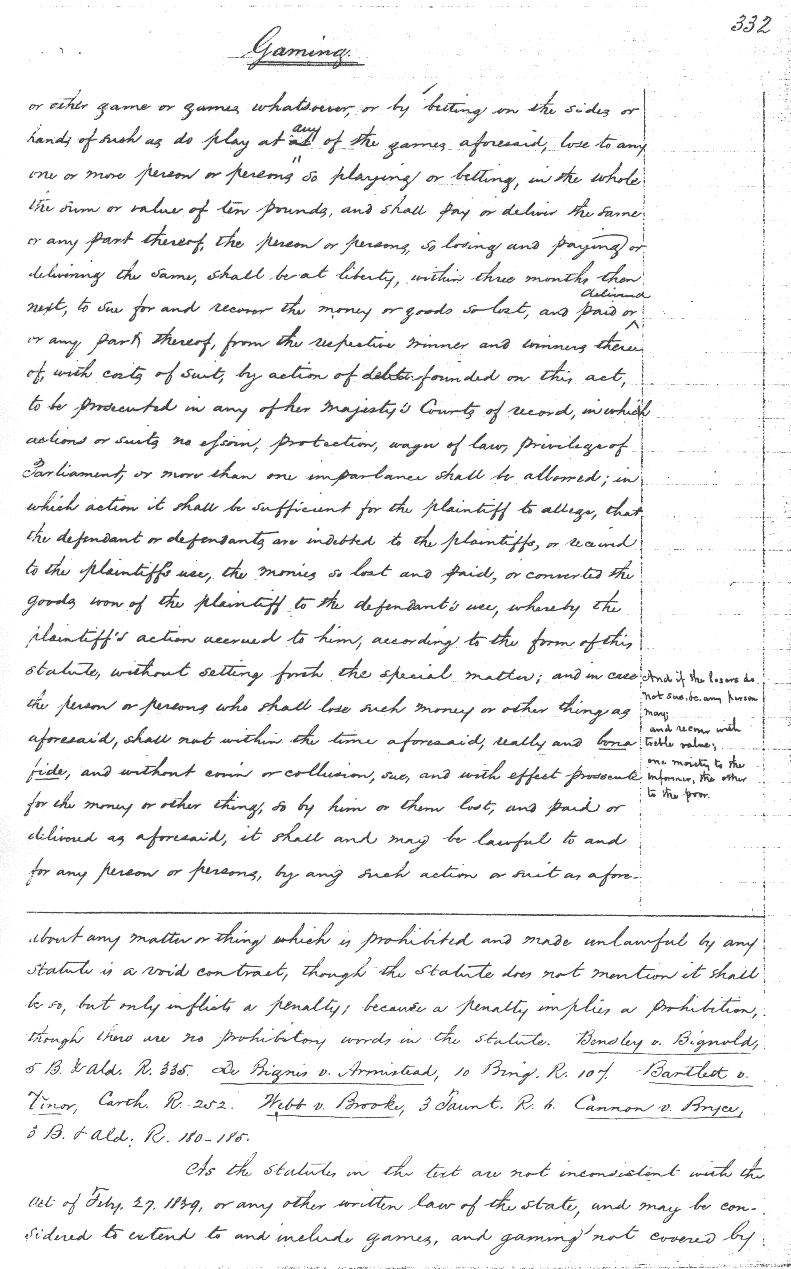 332
Gaming.
or other game or games whatsoever, or by betting on the sides or
hands of such as do play at any of the games aforesaid, lose to any
one or more person or persons so playing or betting, in the whole
the sum or value of ten pounds, and shall pay or deliver the same
or any part thereof, the person or persons, so losing and paying or
delivering the same, shall be at liberty, within three months then
next, to sue for and recover the money or goods so lost, and paid or delivered
or any part thereof, from the respective winner and winners there
of, with costs of suit, by action of debt founded on this act,
to be prosecuted in any of her majesty's Courts of record, in which
actions or suits no essoin, protection, wager of law, privilege of
Parliament, or more than one imparlance shall be allowed; in
which action it shall be sufficient for the plaintiff to allege, that
the defendant or defendants are indebted to the plaintiffs, or received
to the plaintiff's use, the monies so lost and paid, or converted the
goods won of the plaintiff to the defendant's use, whereby the
plaintiff's action accrued to him, according to the form of this
statute, without setting forth the special matter; and in case
the person or persons who shall lose such money or other thing as
aforesaid, shall not within the time aforesaid, really and bona
fide, and without covin or collusion, sue, and with effect prosecute
for the money or other thing, so by him or them lost, and paid or
delivered as aforesaid, it shall and may be lawful to and
for any person or persons, by any such action or suit as afore-
And if the losers do
not sue. &c. any person
may;
and recover with
treble value;
one moiety to the
informer, the other
to the poor.
about any matter or thing which is prohibited and made unlawful by any
statute is a void contract, though the statute does not mention it shall
be so, but only inflicts a penalty; because a penalty implies a prohibition,
though there are no prohibitory words in the statute. Bensley v. Bignold,
5 B. & Ald. R. 335. De Bignis v. Armistead, 10 Bing. R. 107. Bartlett v.
Vinor, Carth. R. 252. Webb v. Brooke, 3 Taunt. R. 6. Cannon v. Bryce,
3 B. & Ald. R. 180-185.
As the statutes in the text are not inconsistent with the
act of Feby. 27, 1839, or any other written law of the state, and may be con-
sidered to extend to and include games, and gaming not covered by